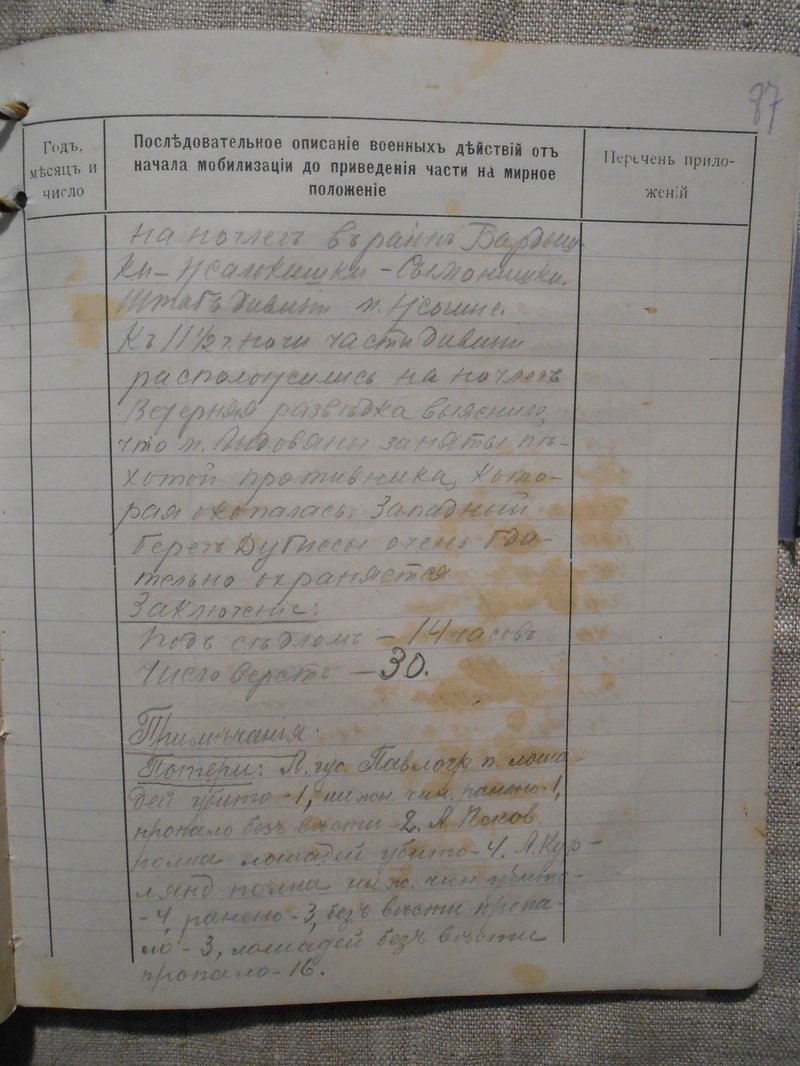 87
Годъ,
мѣсяцъ и
число
Послѣдовательное описаніе военныхъ дѣйствій отъ
начала мобилизаціи до приведенія части на мирное
положеніе
Перечень прило-
женій
на ночлегъ въ районъ
Штабъ дивизіи м.
Къ 11½ ч. ночи части дивизіи
расположились на ночлегъ
Вечерняя развѣдка выяснила,
что м. Лидовяны заняты пѣ-
хотой противника, кото-
рая окопалась. Западный
берегъ Дубиссы очень бди-
тельно охраняется
Заключеніе:
Подъ сѣдломъ – 14 часовъ
Число верстъ – 30.
Примѣчанія:
Потери: Л. гус. Павлогр. п. лоша-
дей убито - 1, нижн. чин. ранено - 1,
пропало безъ вѣсти - 2. Л. Псков.
полка лошадей убито - 4. Л. Кур-
лянд полка ниж. чин убито -
- 4, ранено - 3, безъ вѣсти пропа-
ло - 3, лошадей безъ вѣсти
пропало - 16.